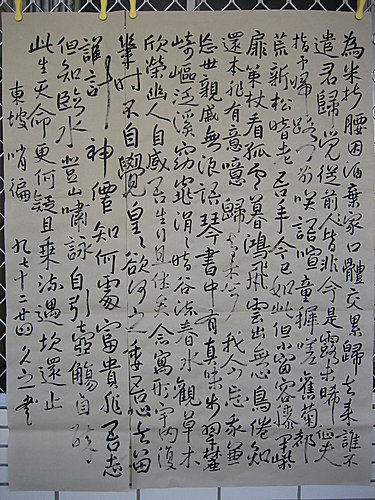 為米折腰因酒棄家口體交累歸去來誰不
遣君歸覺從前人皆非今是露未晞征夫
指予歸路門前笑語喧童穉嗟舊菊都
荒新松暗老吾年今已如此但小窗容膝閉柴
扉策杖看孤雲暮鴻飛雲出無心鳥倦知
還本非有意噫歸去來兮我今忘我兼
忘世親戚無浪語琴書中有真味步翠麓
崎嶇泛溪窈窕涓涓暗谷流春水觀草木
欣榮幽人自感吾生行且休矣念寓形宇內復
幾時不自覺皇皇欲何之委吾心去留
誰計神僊知何處富貴非吾志
但知臨水登山嘯詠自引壺觴自醉
此生天命更何疑且乘流遇坎還止
東坡哨徧 九七十二廿四 書